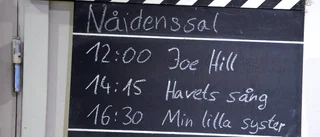 Nåidenssal
12:00 Joe Hill
14:15 Havets sång
16:30 Min lilla syster